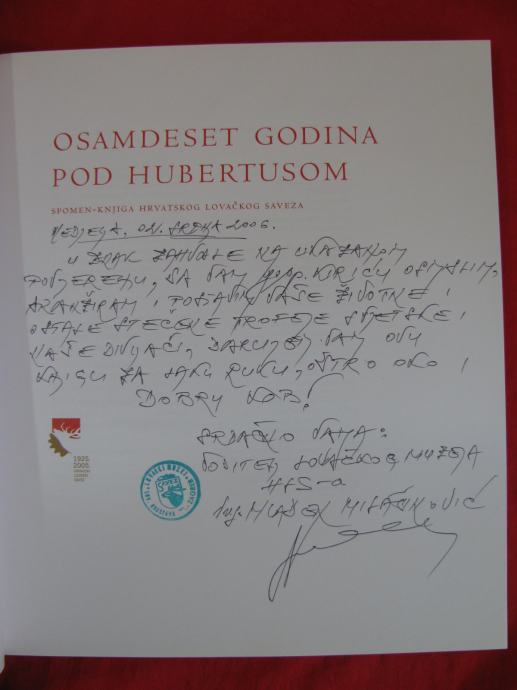 OSAMDESET GODINA
POD HUBERTUSOM
SPOMEN-KNJIGA HRVATSKOG LOVAČKOG SAVEZA
NEDJELJA, 02. SRPNJA 2006.
U ZNAK ZAHVALE NA UKAZANOM
POVJERENJU, DA VAM gosp. KIRIĆU OSMISLIM,
ARANŽIRAM I POSTAVIM VAŠE ŽIVOTNE I
OSTALE STEČENE TROFEJE SVJETSKE I
NAŠE DIVLJAČI, DARUJEM VAM OVU
KNJIGU ZA JAKU RUKU, OŠTRO OKO I
DOBRU KOB!
SRDAČNO VAMA:
VODITELJ LOVAČKOG MUZEJA
HLS-a
Ing. MLADEN
1925
2005
LOVAČKI MUZEJ
ZAGREB